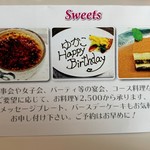 Sweets
ゆかこ
Happy
Birthday
事会や女子会、パーティ等の宴会、コース料理な
ご要望に応じて、お料理¥2,500から承ります。
メッセージプレート、バースデーケーキもお気
お申し付け下さい。ご予約はお早めに！